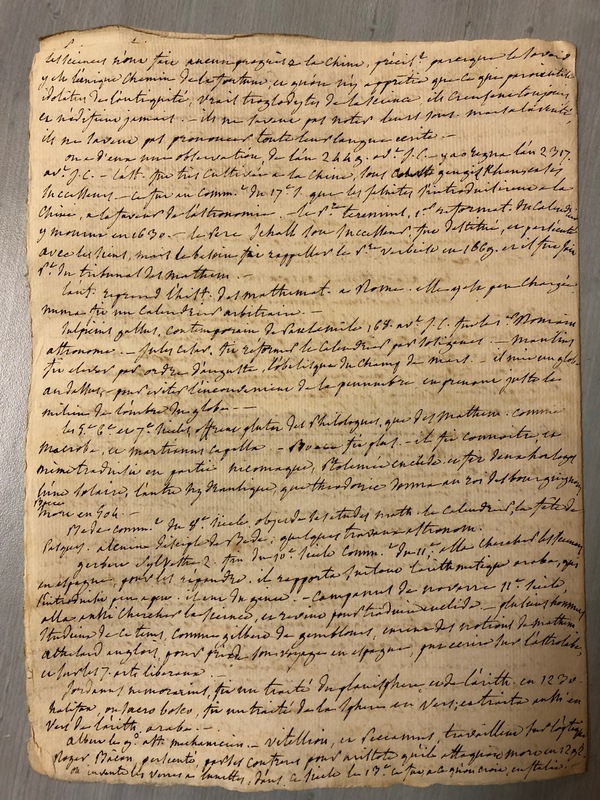 les sciences n'ont fait aucun progrès à la Chine, précis.t parceque le savoir
y est l'unique chemin de la fortune, et qu'on n'y apprécie que ce que
idolâtres de l'antiquité, vrais troglodytes de la science, ils creusent toujours
et n'édifient jamais. — ils ne savent pas noter leurs sons. mais à la vérité,
ils ne savent pas prononcer toute leur langue écrite. —
on a d'eux une observation, de l'an 2449. av.t J.C. — yao regna l'an 2317.
av.t J.C. — l'ast. fut très cultivée à la Chine, sous gengis Khan, et ses
successeurs. — ce fut au comm.t du 17.e S. que les jésuites s'introduisirent à la
Chine, à la faveur de l'astronomie. — le P. terentius, 1.er réformat. du Calendrier
y mourut en 1630. — le Père Schall son successeur, fut et persécuté
avec les siens, mais le besoin fit rappeller le P. verbiest en 1669. et il fut fait
P.t du tribunal des mathém. —
l'aut. reprend l'hist. des mathémat. à Rome. elle y est peu chargée
numa fit un Calendrier arbitraire. —
Sulpicius gallus, contemporain de Paul emile 168. av.t J.C. fut le 1.er Romain
astronome. — Jules César, fit réformer le Calendrier par Sosigènes. — manlius
fit élever par ordre d'auguste, l'obélisque du champ de mars. — il mit un globe
au dessus, pour éviter l'inconvénient de la penumbre en prenant juste le
milieu de l'ombre du globe. —
les 5.e 6.e et 7.e siècles offrent plutôt des Philologues, que des Mathém. comme
macrobe, et martianus capella. — Boece fit plus. — il fit connoitre, et
même traduisit en partie nicomaque, Ptolémée euclide et fit deux horloges
l'une solaire, l'autre hydraulique, que théodoric donna au roi des bourguignons
Boece
mort en 524. —
Bede comm.t du 8.e siècle, objet de ses études math. le Calendrier, la fête de
Pasques. alcuin disciple de Bede; quelques travaux astronom.
gerbert Sylvestre 2. fin du 10.e siècle comm.t du 11.e alla chercher les sciences
en espagne, pour les répandre. il rapporta surtout l'arithmétique arabe, qui
s'introduisit peu a peu. il eut du génie. — campanus de novarre 11.e siècle,
alla aussi chercher la science, et revint pour traduire euclide. — plusieurs hommes
studieux de ce tems, comme gilbert de gemblours, eurent des notions de mathém.
athelard anglois, pour son voyage en espagne, put écrire sur l'astrolabe,
et sur les 7. arts libéraux. —
Jordanus nemorarius, fit un traité du planisphere, et de l'arith. en 1230.
halifax, ou Sacro bosco, fit un traité de la Sphere en vers; et traita aussi en
vers de l'arith. arabe. —
albert le g.d ast. mechanicien. — vitellion, et Peccamus, travaillent sur l'optique
Roger Bacon, persécuté, par les contours pour aristote qu'il attaquoit mort en 1292.
on inventa les verres à lunettes, dans ce siècle le 13.e ce fut, à ce qu'on croit, en Italie.